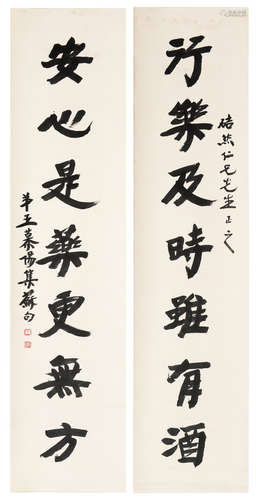 行樂及時雖有酒
硞然仁兄先生正之
安心是藥更無方
弟王慕陽集蘇句